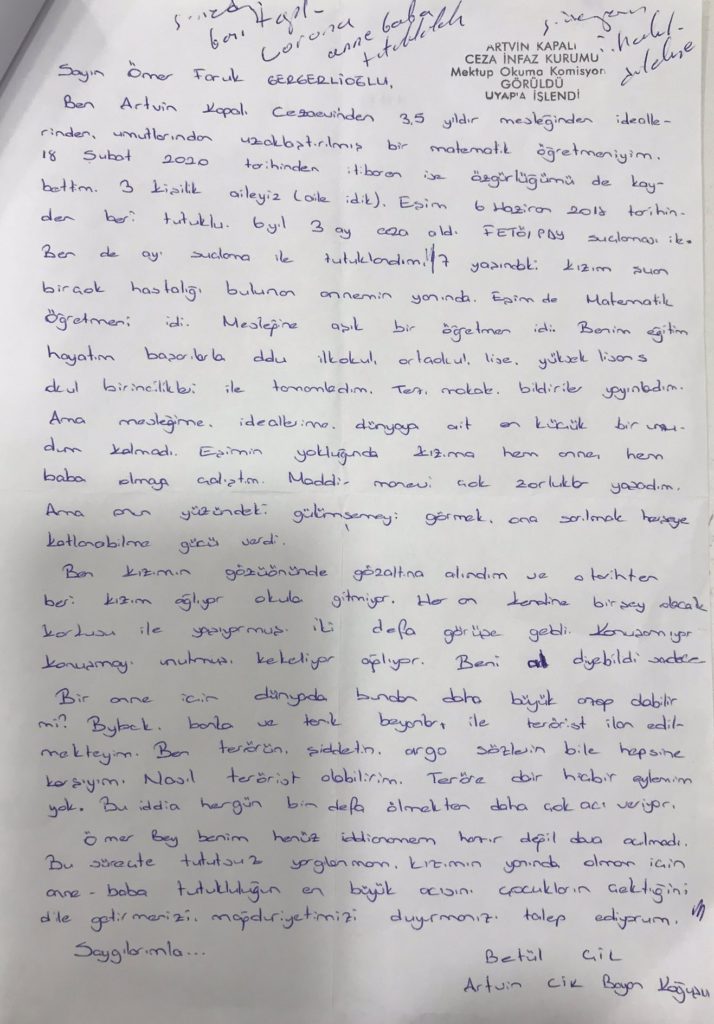 corona
anne baba
tutukluluk
ARTVİN KAPALI
CEZA İNFAZ KURUMU
Mektup Okuma Komisyon
GÖRÜLDÜ
UYAP'A İŞLENDİ
Sayın Ömer Faruk GERGERLİOĞLU,
Ben Artvin Kapalı Cezaevinden 3,5 yıldır mesleğinden idealle-
rinden, umutlarından uzaklaştırılmış bir matematik öğretmeniyim.
18 Şubat 2020 tarihinden itibaren ise özgürlüğümü de kay-
bettim. 3 kişilik aileyiz (aile idik). Eşim 6 Haziran 2018 tarihin-
den beri tutuklu. 6 yıl 3 ay ceza aldı. FETÖ/PDY suçlaması ile.
Ben de aynı suçlama ile tutuklandım. 7 yaşındaki kızım şuan
birçok hastalığı bulunan annemin yanında. Eşim de Matematik
Öğretmeni idi. Mesleğine aşık bir öğretmen idi. Benim eğitim
hayatım başarılarla dolu ilkokul, ortaokul, lise, yüksek lisans
okul birincilikleri ile tamamladım. Tez, makale, bildiriler yayınladım.
Ama mesleğime, ideallerime, dünyaya ait en küçük bir umu-
dum kalmadı. Eşimin yokluğunda kızıma hem anne, hem
baba olmaya çalıştım. Maddi- manevi çok zorluklar yaşadım.
Ama onun yüzündeki gülümsemeyi görmek, ona sarılmak herşeye
katlanabilme gücü verdi.
Ben kızımın gözüönünde gözaltına alındım ve o tarihten
beri kızım ağlıyor okula gitmiyor. Her an kendine birşey olacak
korkusu ile yaşıyormuş. İki defa görüşe geldi. Konuşamıyor
konuşmayı unutmuş, kekeliyor ağlıyor. Beni al diyebildi sadece
Bir anne için dünyada bundan daha büyük acı olabilir
mi? Bylock, banka ve tanık beyanları ile terörist ilan edil-
mekteyim. Ben terörün, şiddetin, argo sözlerin bile hepsine
karşıyım. Nasıl terörist olabilirim. Teröre dair hiçbir eylemim
yok. Bu iddia hergün bin defa ölmekten daha çok acı veriyor.
Ömer Bey benim henüz iddianamem hazır değil dava açılmadı.
Bu süreçte tutuksuz yargılanmam, kızımın yanında olmam için
anne-baba tutukluluğun en büyük acısını çocukların çektiğini
dile getirmenizi, mağduriyetimizi duyurmanızı talep ediyorum.
Saygılarımla...
Betül GİL
Artvin CİK Bayan Koğuşu